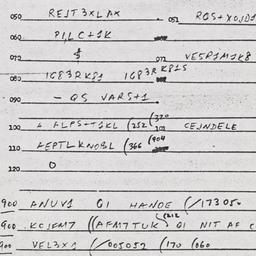 050 REJT3XLAX 052 RQS+XOJD1
060 P1,LC+1K
072 072 VE5R1M1K8
080 1G83RK81 1G83RK81S
090 - QS VARS+1
100 (252 (320 103 CEJNDELE
110 AEPTLKNOBL (366 (904
120 O
900 ANUV1 O1 HANDE (/17305
900 KOJFM7 ((AFM7TUK (212 O1 NIT AF
900 VEL3X1 (/005052 (170 (060